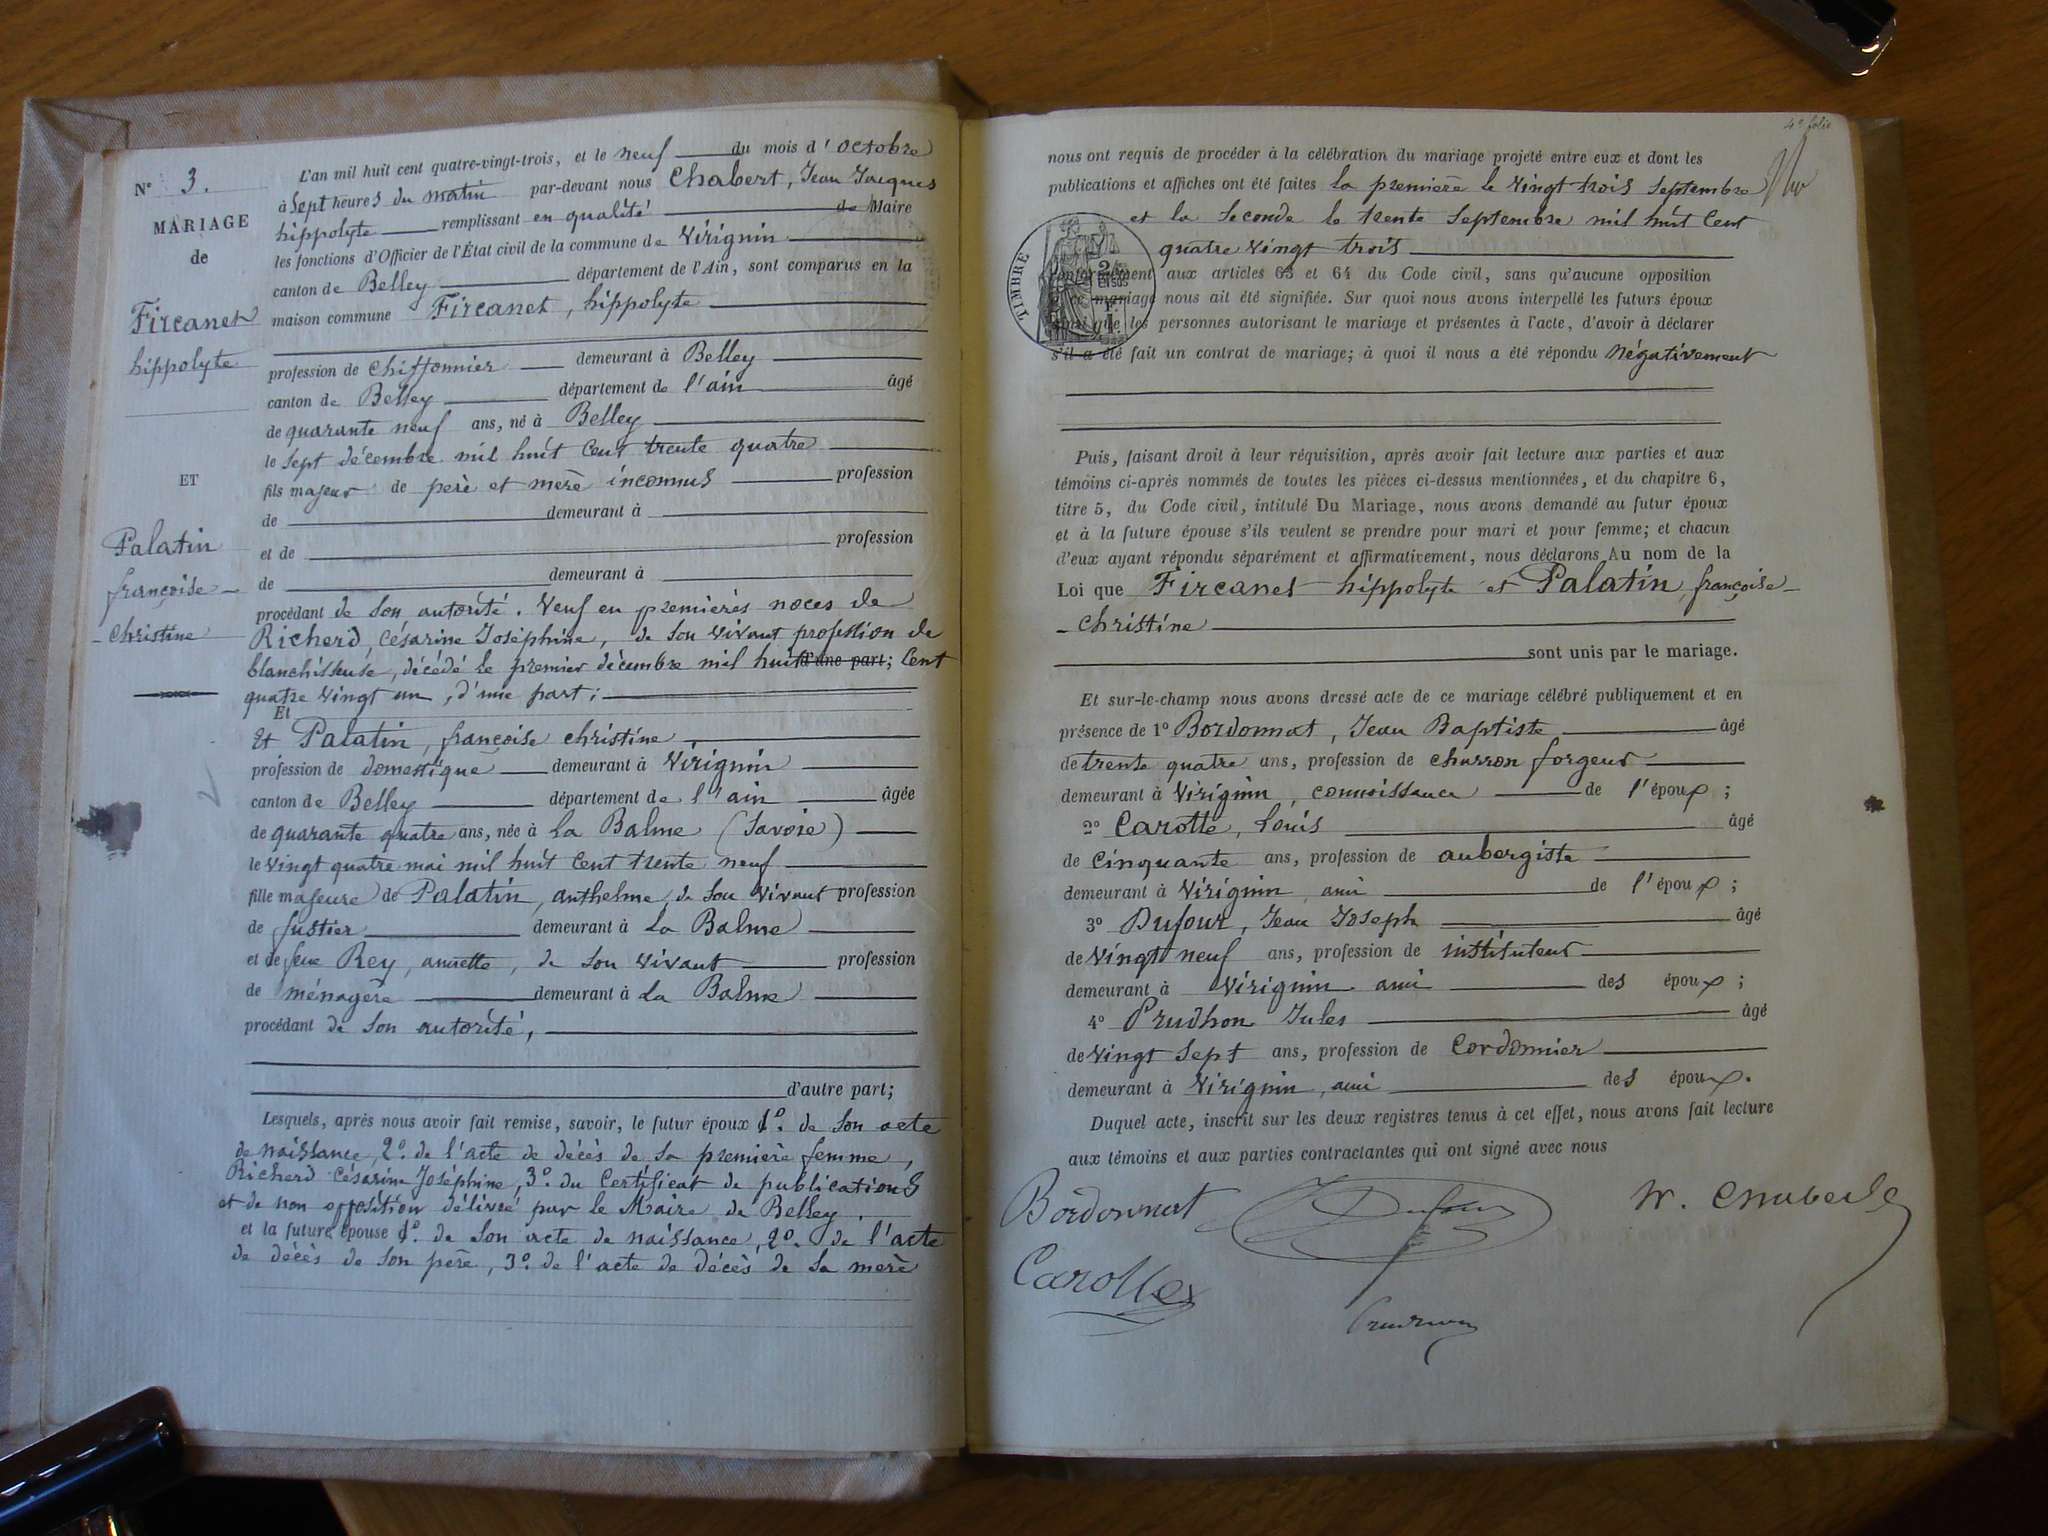 N° 3.
MARIAGE
de
Fircanet
hippolyte
ET
Palatin
françoise
christine
L'an mil huit cent quatre-vingt-trois, et le neuf du mois d'octobre
à Sept heures du matin par-devant nous Chabert, Jean Jacques
hippolyte remplissant en qualité de Maire
les fonctions d'Officier de l'État civil de la commune de Virignin
canton de Belley département de l'Ain, sont comparus en la
maison commune Fircanet, hippolyte
profession de chiffonnier demeurant à Belley
canton de Belley département de l'ain âgé
de quarante neuf ans, né à Belley
le sept décembre mil huit Cent trente quatre
fils majeur de père et mère inconnus profession
de demeurant à
et de profession
de demeurant à
procédant de son autorité. Veuf en premières noces de
Richerd, Césarine Joséphine, de son vivant profession de
blanchisseuse, décédé le premier décembre mil huit d'une part; Cent
quatre vingt un, d'une part;
Et
Et Palatin, françoise christine
profession de domestique demeurant à Virignin
canton de Belley département de l'ain âgée
de quarante quatre ans, née à La Balme (Savoie)
le vingt quatre mai mil huit Cent trente neuf
fille majeure de Palatin, anthelme, de son vivant profession
de fustier demeurant à La Balme
et de feue Rey, annette, de son vivant profession
de ménagère demeurant à La Balme
procédant de son autorité,
d'autre part;
Lesquels, après nous avoir fait remise, savoir, le futur époux 1° de son acte
de naissance, 2° de l'acte de décès de sa première femme,
Richerd Césarine Joséphine, 3° du Certificat de publications
et de non opposition délivré par le Maire de Belley.
et la future épouse 1° de son acte de naissance, 2° de l'acte
de décès de son père, 3° de l'acte de décès de sa mère
4e folio
nous ont requis de procéder à la célébration du mariage projeté entre eux et dont les
publications et affiches ont été faites la première le vingt trois Septembre
et la Seconde le trente Septembre mil huit Cent
quatre vingt trois
TIMBRE
conformément aux articles 63 et 64 du Code civil, sans qu'aucune opposition
à ce mariage nous ait été signifiée. Sur quoi nous avons interpellé les futurs époux
ainsi que les personnes autorisant le mariage et présentes à l'acte, d'avoir à déclarer
s'il a été fait un contrat de mariage; à quoi il nous a été répondu négativement
Puis, faisant droit à leur réquisition, après avoir fait lecture aux parties et aux
témoins ci-après nommés de toutes les pièces ci-dessus mentionnées, et du chapitre 6,
titre 5, du Code civil, intitulé Du Mariage, nous avons demandé au futur époux
et à la future épouse s'ils veulent se prendre pour mari et pour femme; et chacun
d'eux ayant répondu séparément et affirmativement, nous déclarons Au nom de la
Loi que Fircanet hippolyte et Palatin françoise
christine
sont unis par le mariage.
Et sur-le-champ nous avons dressé acte de ce mariage célébré publiquement et en
présence de 1° Bordonnat, Jean Baptiste âgé
de trente quatre ans, profession de charron forgeur
demeurant à Virignin, connaissance de l'époux;
2° Carotte, Louis âgé
de Cinquante ans, profession de aubergiste
demeurant à Virignin, ami de l'époux;
3° Dufour, Jean Joseph âgé
de vingt neuf ans, profession de instituteur
demeurant à Virignin ami des époux;
4° Prudhon Jules âgé
de vingt Sept ans, profession de Cordonnier
demeurant à Virignin, ami des époux.
Duquel acte, inscrit sur les deux registres tenus à cet effet, nous avons fait lecture
aux témoins et aux parties contractantes qui ont signé avec nous
Bordonnat Dufour H. Chabert
Carotte
Prudhon